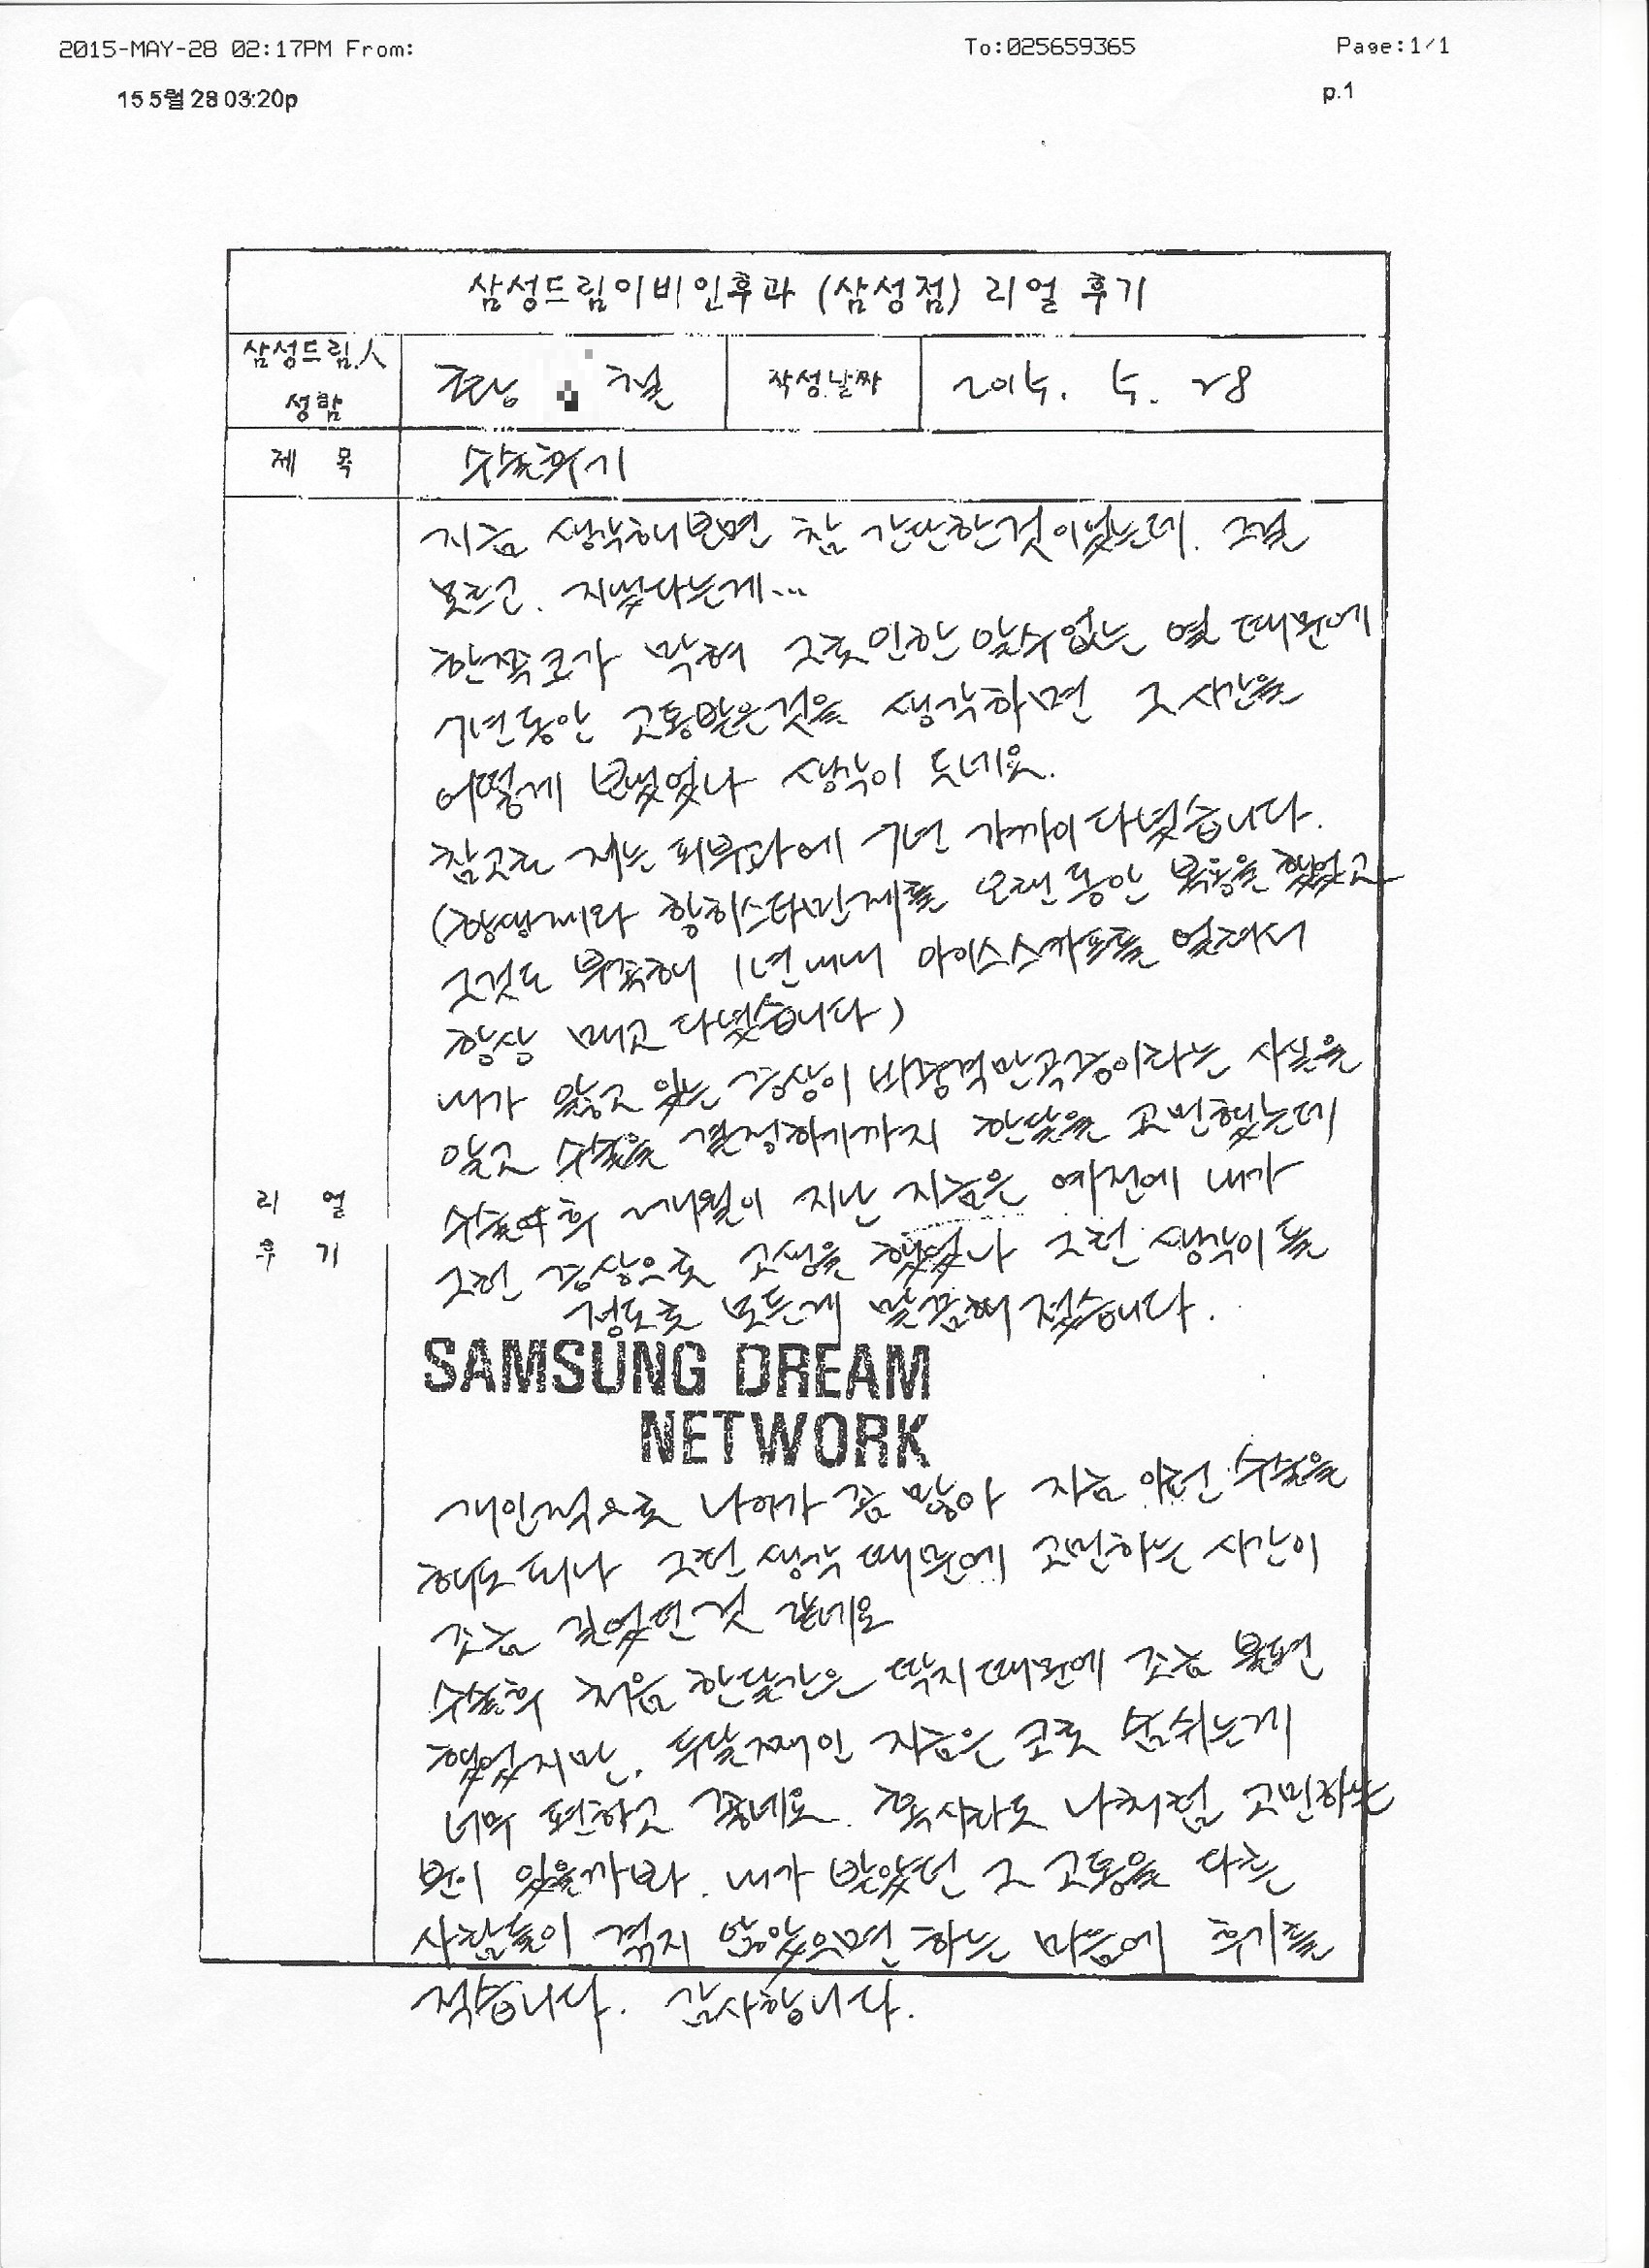 2015-MAY-28 02:17PM From: To:025659365 Page:1/1
15 5월 28 03:20p p.1
삼성드림이비인후과 (삼성점) 리얼 후기
삼성드림人
성함
철
작성날짜
2015. 5. 28
제 목
수술후기
지금 생각해보면 참 간단한것이었는데. 그걸
모르고. 지냈다는게...
한쪽코가 막혀 그로인한 알수없는 열 때문에
7년동안 고통받은것을 생각하면 그 시간을
어떻게 보냈었나 생각이 드네요.
참고로 저는 피부과에 7년 가까이 다녔습니다.
(항생제와 항히스타민제를 오랜동안 복용을 했었고
그것도 부족해 1년내내 아이스스카프를 얼려서
항상 매고 다녔습니다)
내가 앓고 있는 증상이 비중격만곡증이라는 사실을
알고 수술을 결정하기까지 한달을 고민했는데
수술이후 2개월이 지난 지금은 예전에 내가
그런 증상으로 고생을 했었나 그런 생각이 들
정도로 모든게 말끔해 졌습니다.
SAMSUNG DREAM
NETWORK
리 얼
후 기
개인적으로 나이가 좀 많아 지금 이런 수술을
해도 되나 그런 생각 때문에 고민하는 시간이
조금 길었던것 같네요
수술후 처음 한달간은 딱지때문에 조금 불편
했었지만. 두달째인 지금은 코로 숨쉬는게
너무 편하고 좋네요. 혹시라도 나처럼 고민하는
분이 있을까봐. 내가 받았던 그 고통을 다른
사람들이 겪지 않았으면 하는 마음에 후기를
적습니다. 감사합니다.